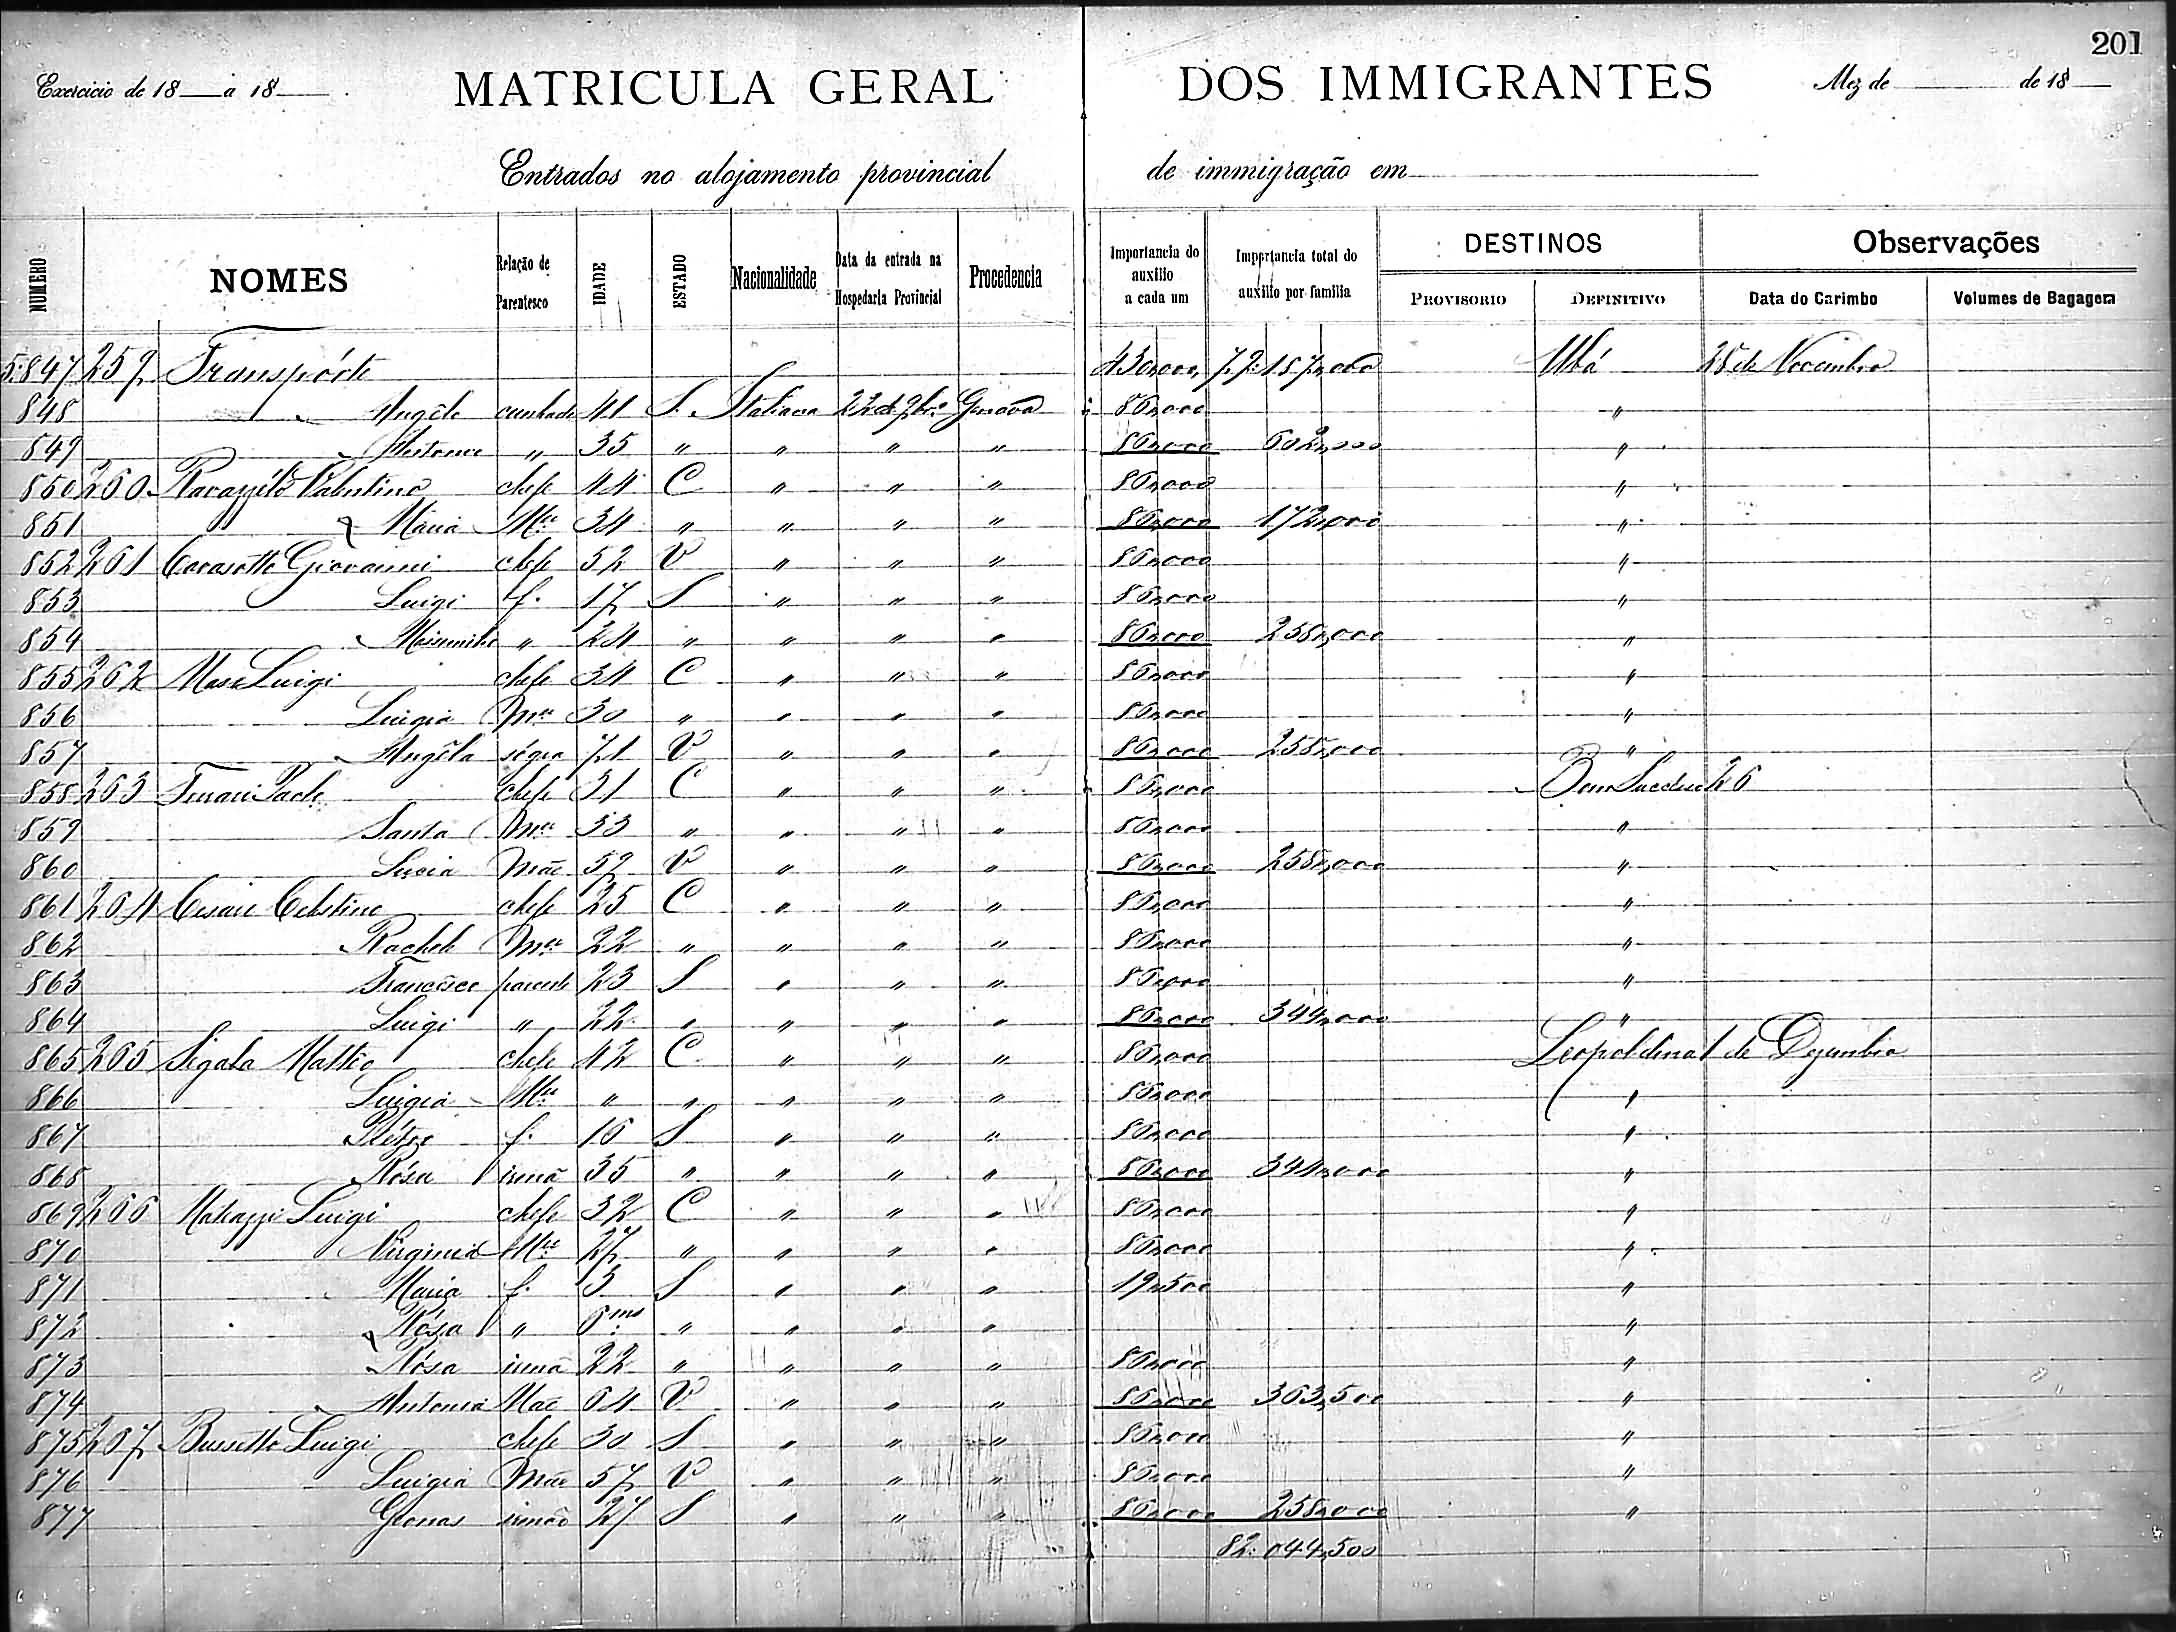 201
Exercicio de 18 a 18
MATRICULA GERAL DOS IMMIGRANTES
Mez de de 18
Entrados no alojamento provincial de immigração em
NUMERO NOMES Relação de Parentesco IDADE ESTADO Nacionalidade Data da entrada na Hospedaria Provincial Procedencia Importancia do auxilio a cada um Importancia total do auxilio por familia DESTINOS PROVISORIO DEFINITIVO Observações Data do Carimbo Volumes de Bagagem
5.847 259 Transpórte 430,000 79:187,000 Ubá 28 de Novembro
848 Angêlo cunhado 41 S. Italiana 22 de 9bro Genova 86,000 "
849 " 35 " " " " 86,000 602,000 "
850 260 Valentino chefe 44 C " " " 86,000 "
851 " Maria Mer 34 " " " " 86,000 172,000 "
852 261 Giovanni chefe 52 V " " " 86,000 "
853 Luigi f. 17 S " " " 86,000 "
854 " 24 " " " " 86,000 258,000 "
855 262 Luigi chefe 34 C " " " 86,000 "
856 Luigia Mer 30 " " " " 86,000 "
857 Angêla sógra 71 V " " " 86,000 258,000 "
858 263 chefe 31 C " " " 86,000 26
859 Santa Mer 33 " " " " 86,000 "
860 Lucia Mãe 59 V " " " 86,000 258,000 "
861 264 Cesare Celestino chefe 25 C " " " 86,000 "
862 Rachele Mer 22 " " " " 86,000 "
863 Francêsco parente 23 S " " " 86,000 "
864 Luigi " 22 " " " " 86,000 344,000 "
865 265 Sigala Mattêo chefe 42 C " " " 86,000 Leopoldina 1 de Dezembro
866 Luigia Mer " " " " " 86,000 "
867 Piétro f. 16 S " " " 86,000 "
868 Rósa irmã 35 " " " " 86,000 344,000 "
869 266 Luigi chefe 32 C " " " 86,000 "
870 Virginia Mer 27 " " " " 86,000 "
871 Maria f. 3 S " " " 19,500 "
872 " Rósa " 6 ms " " " " "
873 Rósa irmã 22 " " " " 86,000 "
874 Antonia Mãe 64 V " " " 86,000 363,500 "
875 267 Bussetto Luigi chefe 30 S " " " 86,000 "
876 Luigia Mãe 57 V " " " 86,000 "
877 irmão 27 S " " " 86,000 258,000 "
82:044,500